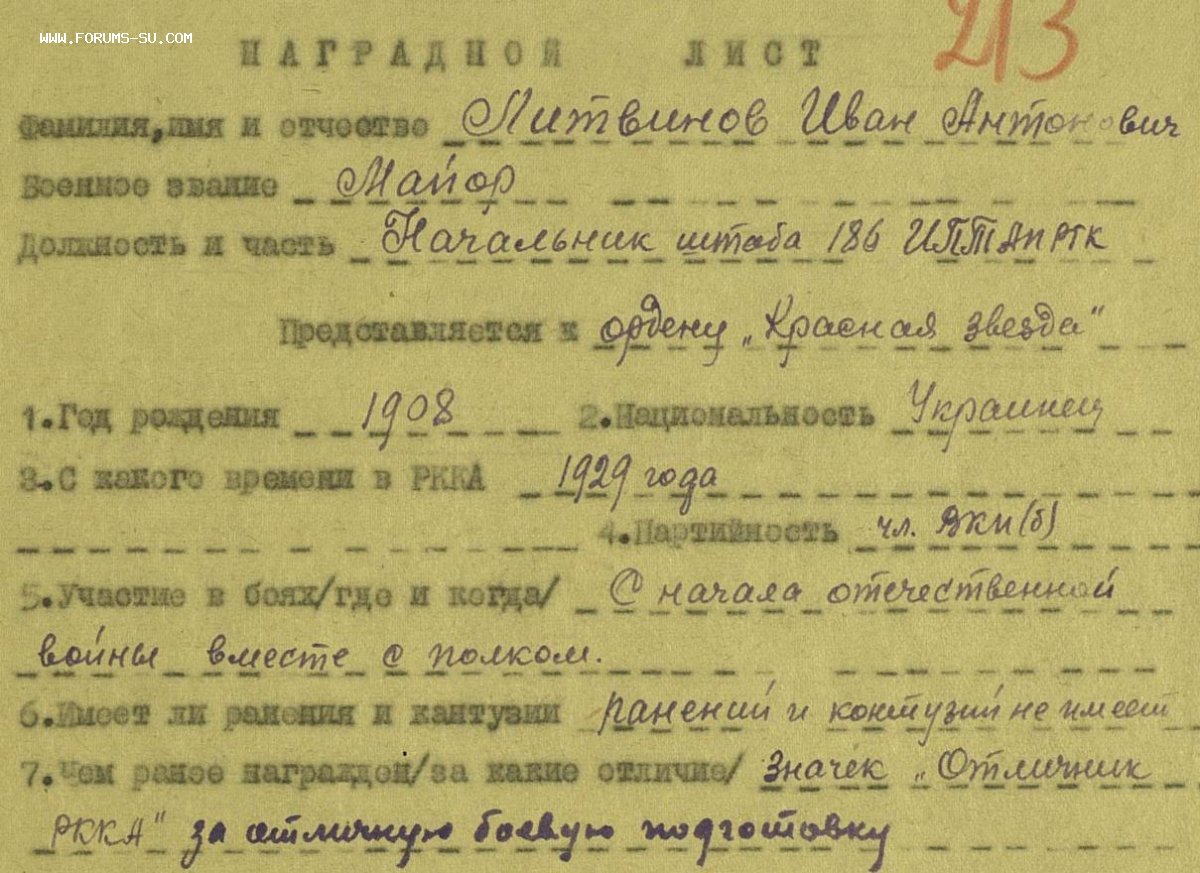 WWW.FORUMS-SU.COM
213
НАГРАДНОЙ ЛИСТ
Фамилия, имя и отчество Литвинов Иван Антонович
Военное звание Майор
Должность и часть Начальник штаба 186 ИПТАП РГК
Представляется к ордену „Красная звезда"
1.Год рождения 1908 2.Национальность Украинец
3.С какого времени в РККА 1929 года
4.Партийность чл. ВКП(б)
5.Участие в боях/где и когда/ С начала отечественной
войны вместе с полком.
6.Имеет ли ранения и кантузии ранений и контузий не имеет
7.Чем ранее награждой/за какие отличие/ Значек „Отличник
РККА" за отличную боевую подготовку